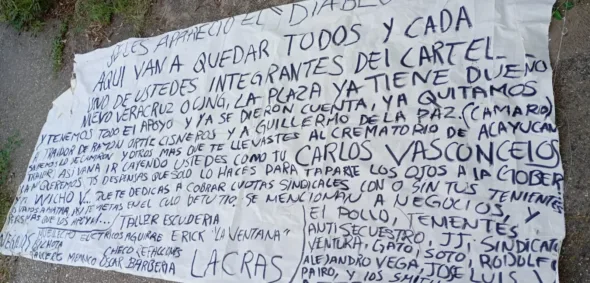 SI LES APARECIO EL "DIABLO
AQUI VAN A QUEDAR TODOS Y CADA
UNO DE USTEDES INTEGRANTES DEL CARTEL
NUEVO VERACRUZ O CJNG, LA PLAZA YA TIENE DUEÑO
Y TENEMOS TODO EL APOYO Y YA SE DIERON CUENTA, YA QUITAMOS
TRAIDOR DE RAMON ORTIZ CISNEROS Y A GUILLERMO DE LA PAZ. (CAMARO)
Y OTROS MAS QUE TE LLEVASTES AL CREMATORIO DE ACAYUCAN
ASI VAN A IR CAYENDO USTEDES COMO TU CARLOS VASCONCELOS
QUEREMOS TS DESPENSAS QUE SOLO LO HACES PARA TAPARTE LOS OJOS A LA GOBER
TU WICHO V... QUE TE DEDICAS A COBRAR CUOTAS SINDICALES CON O SIN TUS TENIENTES
EN EL CULO DE TU TIO, SE MENCIONAN A NEGOCIOS, Y
QUE LOS APOYAN... / TALLER ESCUDERIA
ELECTRICOS AGUIRRE ERICK "LA VENTANA"
MEMICO CHECO REFACCIONES
OSCAR BARBERIA LACRAS
EL POLLO, TENIENTES
ANTISECUESTRO, JJ, SINDICATO
VENTURA, GATO, SOTO, RODOLFO
ALEJANDRO VEGA, JOSE LUIS
PAIRO, Y LOS